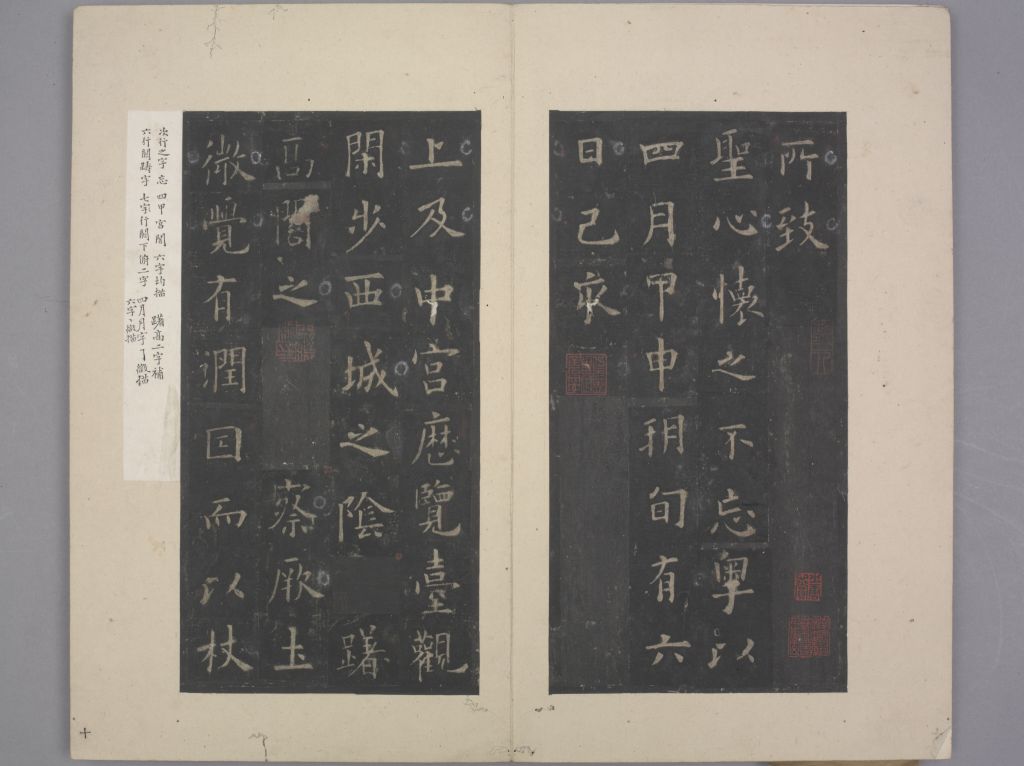 所致
聖心懷之不忘粤以
四月甲申朔旬有六
日己亥
上及中宮歷覽臺觀
閑步西城之陰躇
高閣之察厥土
微覺有潤因而以杖
次行之字 忘 四甲宮閣 六字均描 躇高二字補
六行闕躊字 七字行闕下俯二字 四月月字亅微描
六字丶微描